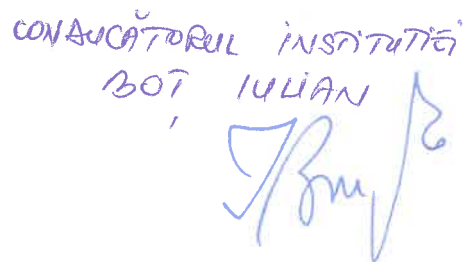 CONDUCĂTORUL INSTITUTIEI
BOȚ IULIAN